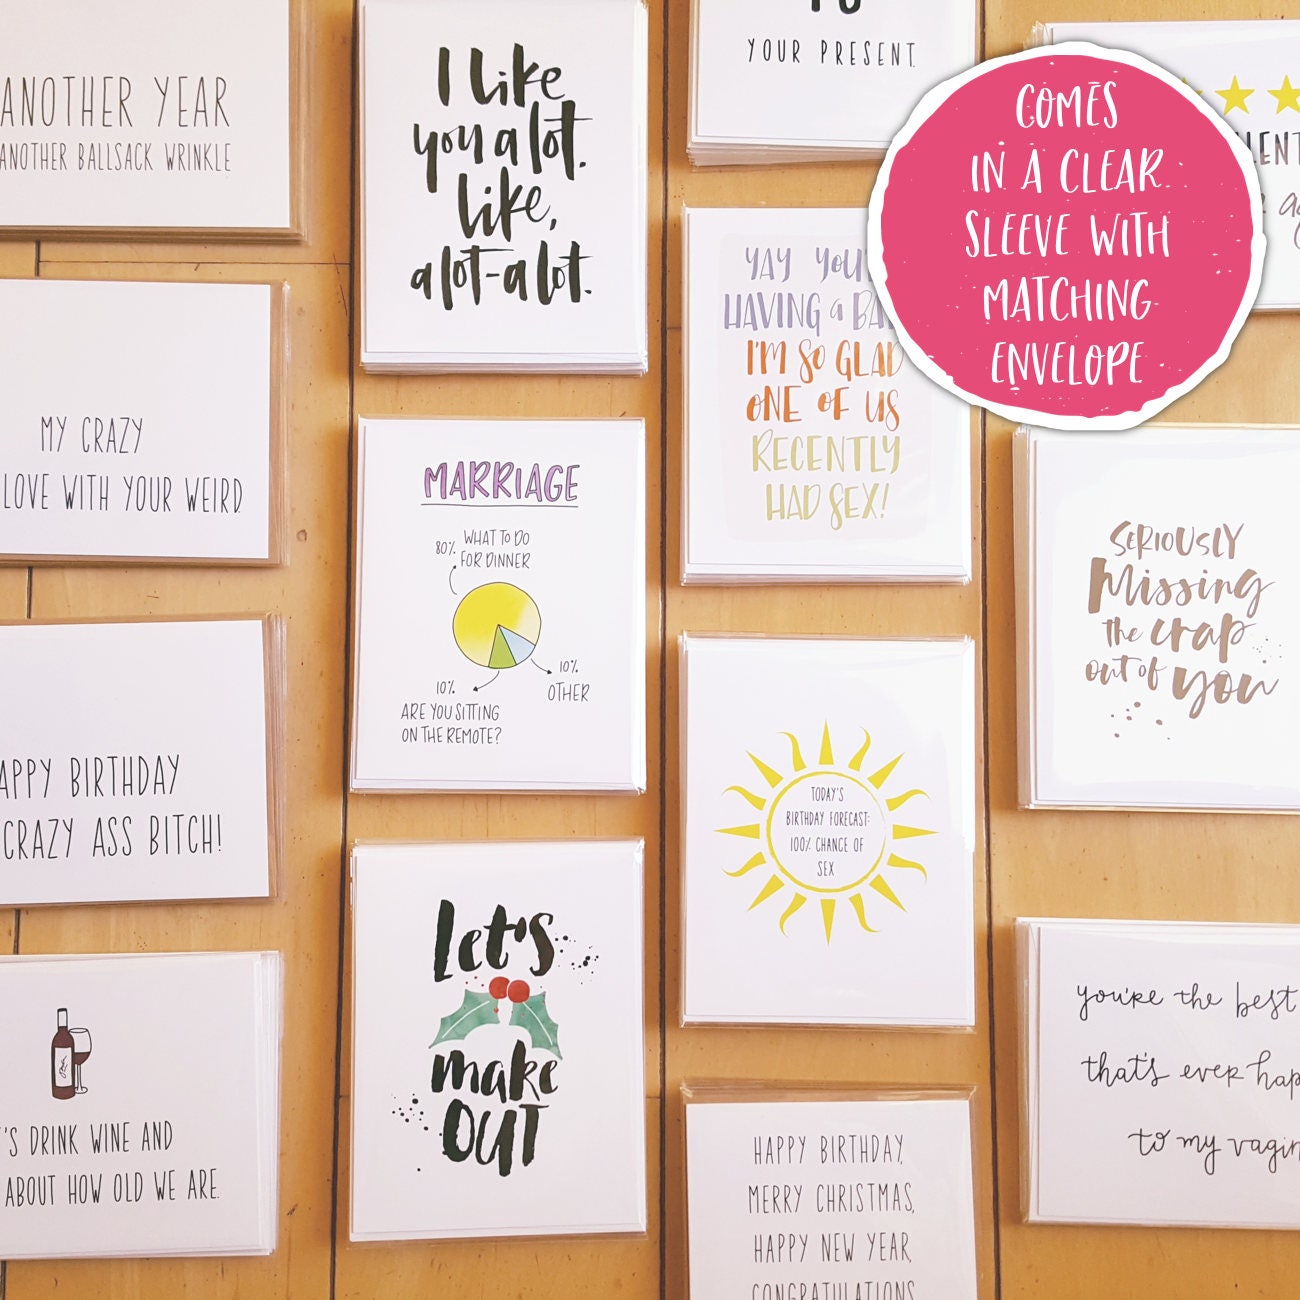 ANOTHER YEAR
ANOTHER BALLSACK WRINKLE
MY CRAZY
LOVE WITH YOUR WEIRD.
APPY BIRTHDAY
CRAZY ASS BITCH!
'S DRINK WINE AND
ABOUT HOW OLD WE ARE.
I like
you a lot.
like,
a lot-a lot.
MARRIAGE
80%
WHAT TO DO
FOR DINNER
10%
OTHER
10%
ARE YOU SITTING
ON THE REMOTE?
Let's
make
OUT
YOUR PRESENT.
YAY YOU
HAVING a BA
I'M SO GLAD
ONE OF US
RECENTLY
HAD SEX!
TODAY'S
BIRTHDAY FORECAST:
100% CHANCE OF
SEX
HAPPY BIRTHDAY,
MERRY CHRISTMAS,
HAPPY NEW YEAR,
CONGRATULATIONS
COMES
IN A CLEAR
SLEEVE WITH
MATCHING
ENVELOPE
LENT
SERIOUSLY
Missing
the crap
out of you
you're the best
that's ever hap
to my vagin